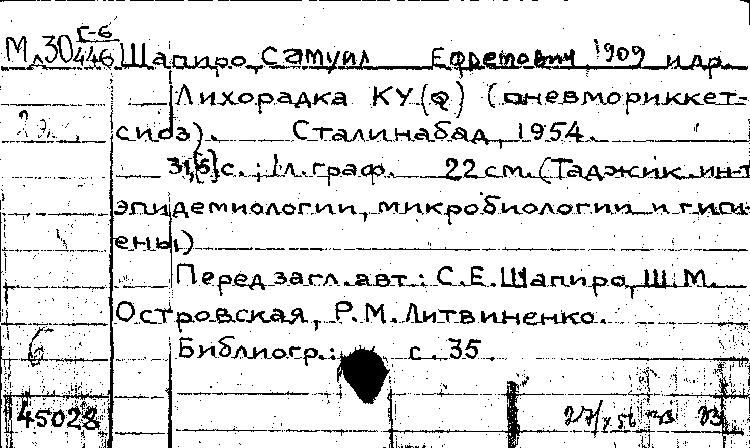 Г-6
Мл30/446 Шапиро, Самуил Ефремович, 1909 и др.
Лихорадка КУ(Q) (пневмориккет-
2э.
сиоз). Сталинабад, 1954.
31,[5]с.; 1л.граф. 22 см. (Таджик. ин-т
эпидемиологии, микробиологии и гиги-
ены)
Перед загл. авт.: С.Е.Шапиро, Ш.М.
Островская, Р.М.Литвиненко.
Библиогр.: с. 35.
б
45028
27/X 56